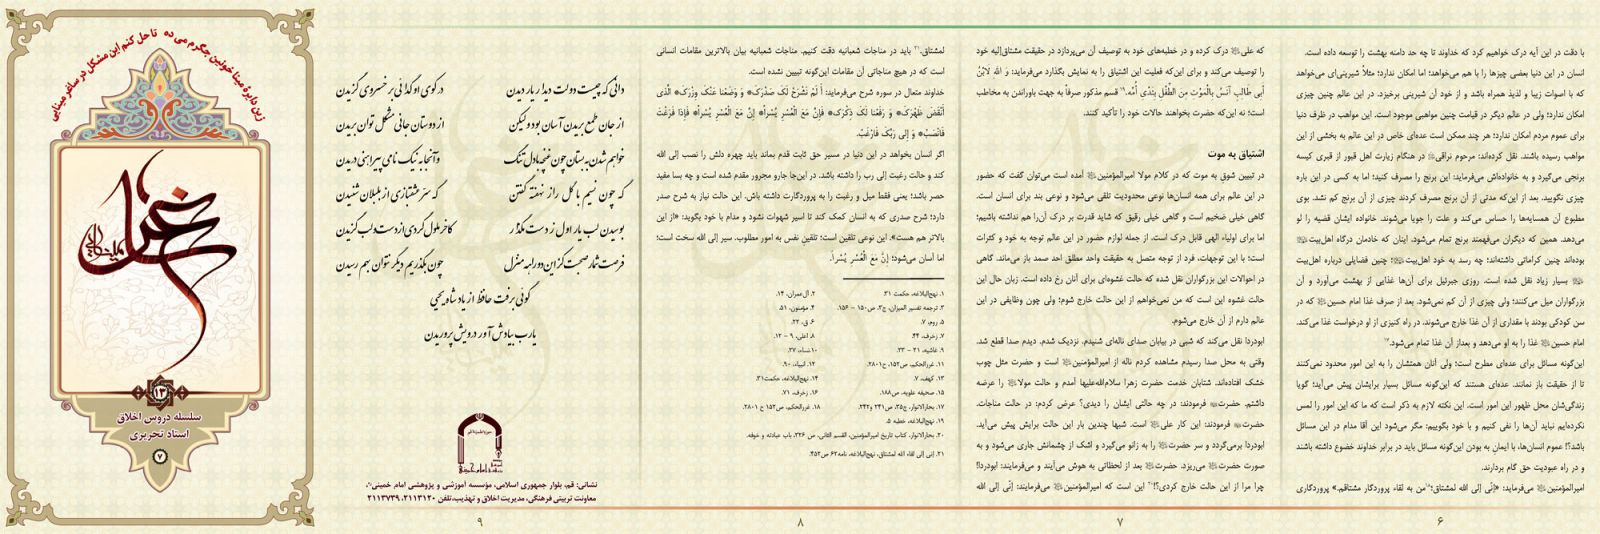 با دقت در این آیه درک خواهیم کرد که خداوند تا چه حد دامنه بهشت را توسعه داده است.
انسان در این دنیا بعضی چیزها را با هم می‌خواهد؛ اما امکان ندارد؛ مثلاً شیرینی‌ای می‌خواهد
که با اصوات زیبا و لذیذ همراه باشد و از خود آن شیرینی برخیزد. در این عالم چنین چیزی
امکان ندارد؛ ولی در عالم دیگر در قیامت چنین مواهبی موجود است. این مواهب در ظرف دنیا
برای عموم مردم امکان ندارد؛ هر چند ممکن است عده‌ای خاص در این عالم به بخشی از این
مواهب رسیده باشند. نقل کرده‌اند: مرحوم نراقی در هنگام زیارت اهل قبور از قبری کیسه
برنجی می‌گیرد و به خانواده‌اش می‌فرماید: این برنج را مصرف کنید؛ اما به کسی در این باره
چیزی نگویید. بعد از این‌که مدتی از آن برنج مصرف کردند چیزی از آن برنج کم نشد. بوی
مطبوع آن همسایه‌ها را حساس می‌کند و علت را جویا می‌شوند. خانواده ایشان قضیه را لو
می‌دهد. همین که دیگران می‌فهمند برنج تمام می‌شود. اینان که خادمان درگاه اهل‌بیت
بوده‌اند چنین کراماتی داشته‌اند؛ چه رسد به خود اهل‌بیت؛ چنین فضایلی درباره اهل‌بیت
بسیار زیاد نقل شده است. روزی جبرئیل برای آن‌ها غذایی از بهشت می‌آورد و آن
بزرگواران میل می‌کنند؛ ولی چیزی از آن کم نمی‌شود. بعد از صرف غذا امام حسین که در
سن کودکی بودند با مقداری از آن غذا خارج می‌شوند. در راه کنیزی از او درخواست غذا می‌کند.
امام حسین غذا را به او می‌دهد و بعداز آن غذا تمام می‌شود.
این‌گونه مسائل برای عده‌ای مطرح است؛ ولی آنان همتشان را به این امور محدود نمی‌کنند
تا از حقیقت باز نمانند. عده‌ای هستند که این‌گونه مسائل بسیار برایشان پیش می‌آید؛ گویا
زندگی‌شان محل ظهور این امور است. این نکته لازم به ذکر است که ما که این امور را لمس
نکرده‌ایم نباید آن‌ها را نفی کنیم و با خود بگوییم: مگر می‌شود این آقا مدام در این مسائل
باشد؟! عموم انسان‌ها، با ایمان به بودن این‌گونه مسائل باید در برابر خداوند خضوع داشته باشند
و در راه عبودیت حق گام بردارند.
امیرالمؤمنین می‌فرماید: «إنّی إلی الله لمشتاق؛ من به لقاء پروردگار مشتاقم.» پروردگاری
۶
که علی درک کرده و در خطبه‌های خود به توصیف آن می‌پردازد در حقیقت مشتاق‌إلیه خود
را توصیف می‌کند و برای این‌که فعلیت این اشتیاق را به نمایش بگذارد می‌فرماید: وَ الله لَابْنُ
أَبِی طَالِبٍ آنَسُ بِالْمَوْتِ مِنَ الطِّفْلِ بِثَدْیِ أُمِّه. قسم مذکور صرفاً به جهت باوراندن به مخاطب
است؛ نه این‌که حضرت بخواهند حالات خود را تأکید کنند.
اشتیاق به موت
در تبیین شوق به موت که در کلام مولا امیرالمؤمنین آمده است می‌توان گفت که حضور
در این عالم برای همه انسان‌ها نوعی محدودیت تلقی می‌شود و نوعی بند برای انسان است.
گاهی خیلی ضخیم است و گاهی خیلی رقیق که شاید قدرت بر درک آن‌را هم نداشته باشیم؛
اما برای اولیاء الهی قابل درک است. از جمله لوازم حضور در این عالم توجه به خود و کثرات
است؛ با این توجهات، فرد از توجه متصل به حقیقت واحد مطلق احد صمد باز می‌ماند. گاهی
در احوالات این بزرگواران نقل شده که حالت غشوه‌ای برای آنان رخ داده است. زبان حال این
حالت غشوه این است که من نمی‌خواهم از این حالت خارج شوم؛ ولی چون وظایفی در این
عالم دارم از آن خارج می‌شوم.
ابودردا نقل می‌کند که شبی در بیابان صدای ناله‌ای شنیدم. نزدیک شدم. دیدم صدا قطع شد.
وقتی به محل صدا رسیدم مشاهده کردم ناله از امیرالمؤمنین است و حضرت مثل چوب
خشک افتاده‌اند. شتابان خدمت حضرت زهرا سلام‌الله‌علیها آمدم و حالت مولا را عرضه
داشتم. حضرت فرمودند: در چه حالتی ایشان را دیدی؟ عرض کردم: در حالت مناجات.
حضرت فرمودند: این کار علی است. شبها چندین بار این حالت برایش پیش می‌آید.
ابودردا برمی‌گردد و سر حضرت را به زانو می‌گیرد و اشک از چشمانش جاری می‌شود و به
صورت حضرت می‌ریزد. حضرت بعد از لحظاتی به هوش می‌آیند و می‌فرمایند: ابودردا!
چرا مرا از این حالت خارج کردی؟! این است که امیرالمؤمنین می‌فرمایند: إنّی إلی الله
۷
لمشتاق. باید در مناجات شعبانیه دقت کنیم. مناجات شعبانیه بیان بالاترین مقامات انسانی
است که در هیچ مناجاتی آن مقامات این‌گونه تبیین نشده است.
خداوند متعال در سوره شرح می‌فرماید: أَ لَمْ نَشْرَحْ لَکَ صَدْرَکَ وَ وَضَعْنا عَنْکَ وِزْرَکَ الَّذی
أَنْقَضَ ظَهْرَکَ وَ رَفَعْنا لَکَ ذِکْرَکَ فَإِنَّ مَعَ الْعُسْرِ یُسْراً إِنَّ مَعَ الْعُسْرِ یُسْراً فَإِذا فَرَغْتَ
فَانْصَبْ وَ إِلی رَبِّکَ فَارْغَبْ.
اگر انسان بخواهد در این دنیا در مسیر حق ثابت قدم بماند باید چهره دلش را نصب إلی الله
کند و حالت رغبت إلی رب را داشته باشد. در این‌جا جارو مجرور مقدم شده است و چه بسا مفید
حصر باشد؛ یعنی فقط میل و رغبت را به پروردگارت داشته باش. این حالت نیاز به شرح صدر
دارد؛ شرح صدری که به انسان کمک کند تا اسیر شهوات نشود و مدام با خود بگوید: «از این
بالاتر هم هست». این نوعی تلقین است؛ تلقین نفس به امور مطلوب. سیر إلی الله سخت است؛
اما آسان می‌شود؛ إِنَّ مَعَ الْعُسْرِ یُسْراً.
۱. نهج‌البلاغه، حکمت ۳۱.
۲. آل‌عمران، ۱۴.
۳. ترجمه تفسیر المیزان، ج۳، ص۱۵۰ – ۱۵۶.
۴. مؤمنون، ۵۱.
۵. روم، ۷.
۶. ق، ۲۲.
۷. زخرف، ۴۴.
۸. اعلی، ۹ – ۱۲.
۹. غاشیه، ۲۱ – ۲۳.
۱۰. نساء، ۲۷.
۱۱. غررالحکم، ص۱۵۲، ح۲۸۰۱.
۱۲. انبیاء، ۹۰.
۱۳. کهف، ۷.
۱۴. نهج‌البلاغه، حکمت۳۱.
۱۵. صحیفه علویه، ص۱۸۸.
۱۶. زخرف، ۷۱.
۱۷. بحارالانوار، ج۲۵، ص۲۴۱ و۲۴۲.
۱۸. غررالحکم، ص۱۵۲ ح ۲۸۰۱.
۱۹. نهج‌البلاغه، خطبه ۵.
۲۰. بحارالانوار، کتاب تاریخ امیرالمؤمنین، القسم الثانی، ص ۲۲۶، باب عبادته و خوفه.
۲۱. إنی إلی لقاء الله لمشتاق، نهج‌البلاغه، نامه۶۲ ص۴۵۲.
۸
دانی که چیست دولت دیدار یار دیدن
در کوی او گدائی بر خسروی گزیدن
از جان طمع بریدن آسان بود ولیکن
از دوستان جانی مشکل توان بریدن
خواهم شدن به بستان چون غنچه با دل تنگ
و آنجا به نیک نامی پیراهنی دریدن
که چون نسیم با گل راز نهفته گفتن
که سر عشقبازی از بلبلان شنیدن
بوسیدن لب یار اول ز دست مگذار
کاخر ملول گردی از دست و لب گزیدن
فرصت شمار صحبت کز این دوراهه منزل
چون بگذریم دیگر نتوان بهم رسیدن
گوئی برفت حافظ از یاد شاه یحیی
یارب بیادش آور درویش پروریدن
نشانی: قم، بلوار جمهوری اسلامی، مؤسسه آموزشی و پژوهشی امام خمینی
معاونت تربیتی فرهنگی، مدیریت اخلاق و تهذیب، تلفن ۲۱۱۳۱۲۰، ۲۱۱۳۷۳۹
۹
زین دایرهٔ مینا خونین جگرم می ده تا حل کنم این مشکل در ساغر مینایی
غزل
۱۳
سلسله دروس اخلاق
استاد تحریری
۷